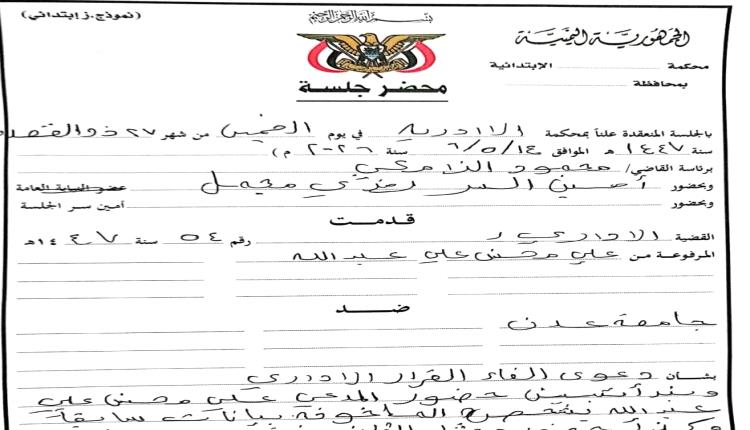 (نموذج.ز إبتدائي)
بسم الله الرحمن الرحيم
الجمهورية اليمنية
محكمة الإبتدائية
بمحافظة
محضر جلسة
بالجلسة المنعقدة علناً بمحكمة الادارية في يوم الخميس من شهر ٢٧ ذو القعدة
سنة ١٤٤٧ هـ الموافق ١٤/٥/ سنة ٢٠٢٦ م)
برئاسة القاضي/ محمود
وبحضور أمين السر رمزي عضو النيابة العامة
وبحضور أمين سر الجلسة
قدمت
القضية الاداري رقم ٥٤ سنة ١٤٤٧هـ
المرفوعة من علي محسن علي عبدالله
ضد
جامعة عدن
بشان دعوى الغاء القرار الاداري
حضور المدعي علي محسن علي
عبدالله بيانات سابقا